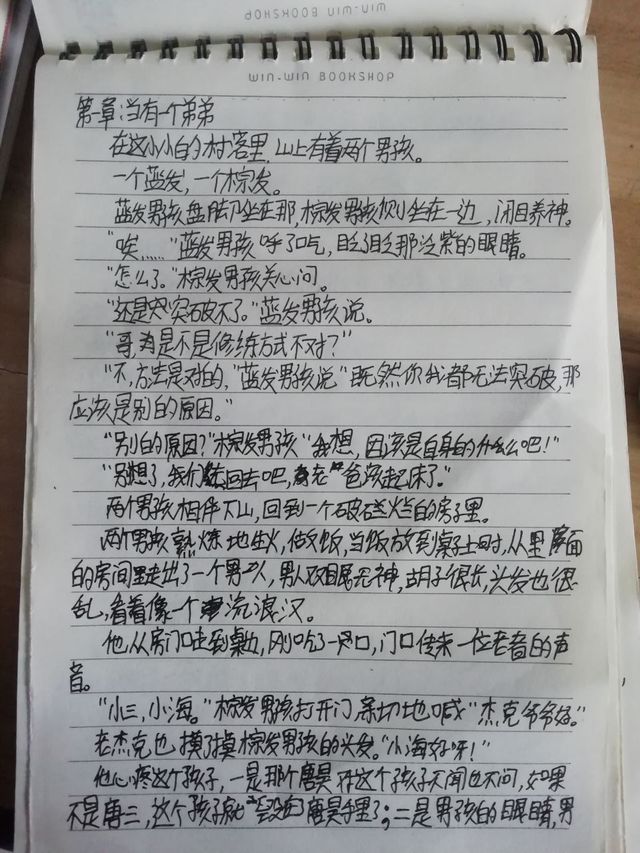 WIN-WIN BOOKSHOP
WIN-WIN BOOKSHOP
第一章：当有一个弟弟
在这小小的村落里，山上有着两个男孩。
一个蓝发，一个棕发。
蓝发男孩盘腿坐在那，棕发男孩则坐在一边，闭目养神。
"唉……"蓝发男孩呼了口气，眨了眨那淡紫的眼睛。
"怎么了。"棕发男孩关心问。
"还是突破不了。"蓝发男孩说。
"哥，是不是修练方式不对？"
"不，方法是对的，"蓝发男孩说"既然你我都无法突破，那
应该是别的原因。"
"别的原因？"棕发男孩"我想，因该是自身的什么吧！"
"别想了，我们回去吧，老爸该起床了。"
两个男孩相伴下山，回到一个破破烂烂的房子里。
两个男孩熟炼地生火，做饭，当饭放到桌上时，从里面
的房间里走出了一个男人，男人双目无神，胡子很长，头发也很
乱，看着像一个流浪汉。
他从房门口走到桌边，刚吃了一口，门口传来一位老者的声
音。
"小三，小海。"棕发男孩打开门，亲切地喊"杰克爷爷好。"
老杰克也摸了摸棕发男孩的头发。"小海好呀！"
他心疼这个孩子，一是那个唐昊对这个孩子不闻也不问，如果
不是唐三，这个孩子就会没命唐昊手里了；二是男孩的眼睛，男